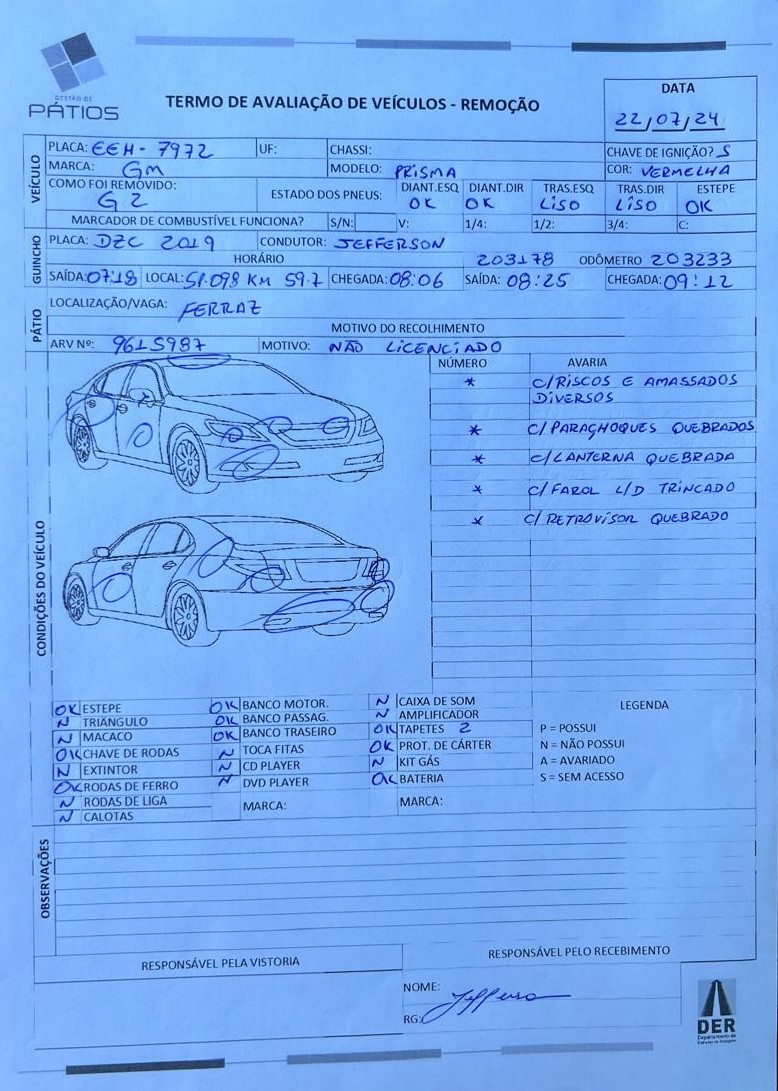 GESTÃO DE
PÁTIOS
TERMO DE AVALIAÇÃO DE VEÍCULOS - REMOÇÃO
DATA
22/07/24
VEÍCULO
PLACA: EEH-7972 UF: CHASSI: CHAVE DE IGNIÇÃO? S
MARCA: GM MODELO: PRISMA COR: VERMELHA
COMO FOI REMOVIDO: G2 ESTADO DOS PNEUS: DIANT.ESQ OK DIANT.DIR OK TRAS.ESQ LISO TRAS.DIR LISO ESTEPE OK
MARCADOR DE COMBUSTÍVEL FUNCIONA? S/N: V: 1/4: 1/2: 3/4: C:
GUINCHO
PLACA: DZC 2019 CONDUTOR: JEFFERSON
HORÁRIO 203178 ODÔMETRO 203233
SAÍDA: 07:18 LOCAL: SP.098 KM 59.7 CHEGADA: 08:06 SAÍDA: 08:25 CHEGADA: 09:12
PÁTIO
LOCALIZAÇÃO/VAGA: FERRAZ
MOTIVO DO RECOLHIMENTO
ARV Nº: 9615987 MOTIVO: NÃO LICENCIADO
CONDIÇÕES DO VEÍCULO
NÚMERO AVARIA
* C/RISCOS E AMASSADOS
DIVERSOS
* C/PARACHOQUES QUEBRADOS
* C/LANTERNA QUEBRADA
* C/FAROL L/D TRINCADO
* C/RETROVISOR QUEBRADO
OK ESTEPE OK BANCO MOTOR. N CAIXA DE SOM LEGENDA
N TRIÂNGULO OK BANCO PASSAG. N AMPLIFICADOR
N MACACO OK BANCO TRASEIRO OK TAPETES 2 P = POSSUI
OK CHAVE DE RODAS N TOCA FITAS OK PROT. DE CÁRTER N = NÃO POSSUI
N EXTINTOR N CD PLAYER N KIT GÁS A = AVARIADO
OK RODAS DE FERRO N DVD PLAYER OK BATERIA S = SEM ACESSO
N RODAS DE LIGA MARCA: MARCA:
N CALOTAS
OBSERVAÇÕES
RESPONSÁVEL PELA VISTORIA RESPONSÁVEL PELO RECEBIMENTO
NOME: Jefferson
RG:
DER
Departamento de
Estradas de Rodagem